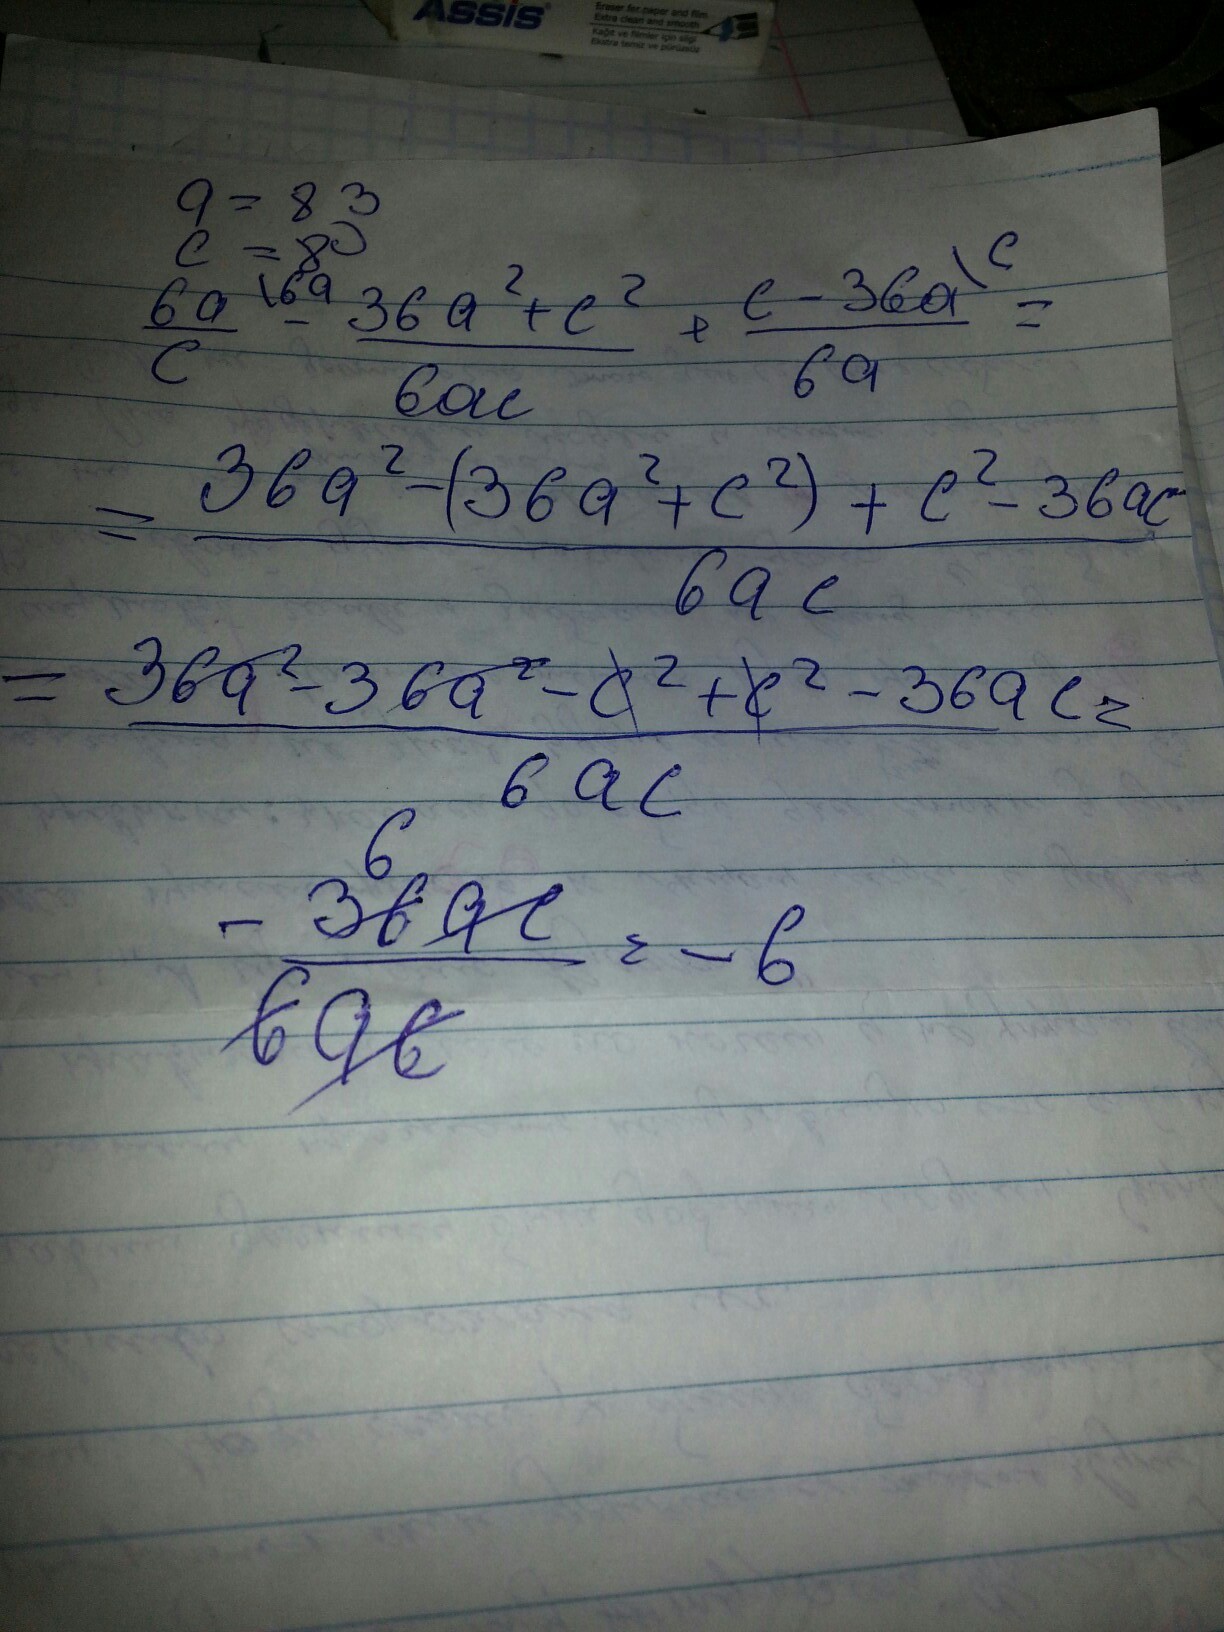 ASSIS
Eraser for paper and film
Extra clean and smooth
Kağıt ve filmler için silgi
Ekstra temiz ve pürüzsüz
a = 83
c = 80
6a/c \6a - (36a² + c²)/6ac + (c - 36a)/6a \c =
= (36a² - (36a² + c²) + c² - 36ac)/6ac
= (36a² - 36a² - c² + c² - 36ac)/6ac =
6
- 36ac/6ac = - 6